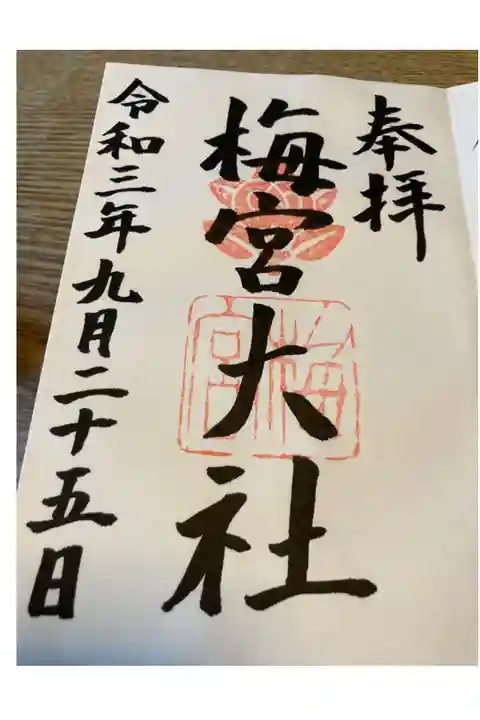 奉拝
梅宮大社
梅宮
令和三年九月二十五日